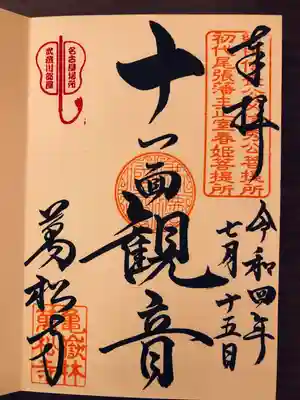 奉拝
初代尾張藩主正室春姫菩提所
令和四年
七月十五日
十一面
觀音
名古屋場所
武蔵川部屋
萬松寺
亀嶽林
萬松寺